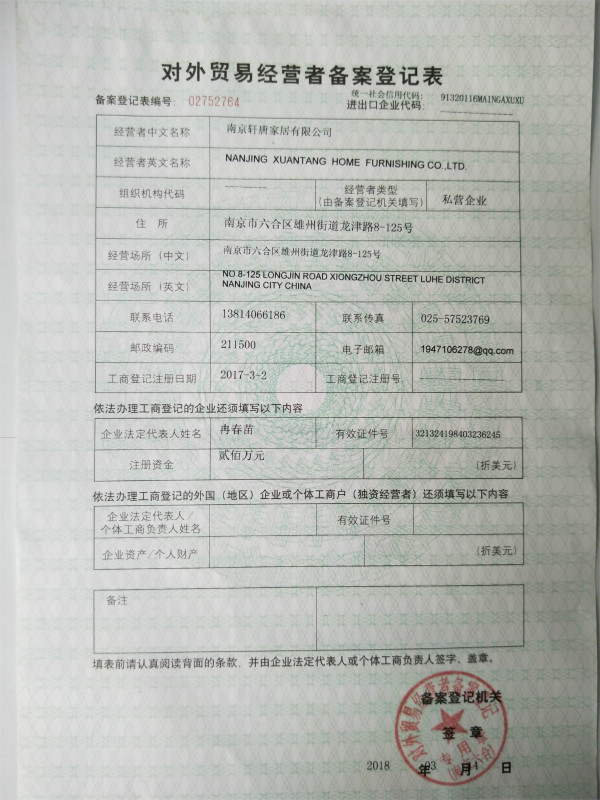 对外贸易经营者备案登记表
备案登记表编号: 02752764
统一社会信用代码: 91320116MA1NGAXUXU
进出口企业代码:
经营者中文名称 南京轩唐家居有限公司
经营者英文名称 NANJING XUANTANG HOME FURNISHING CO.,LTD.
组织机构代码 经营者类型 (由备案登记机关填写) 私营企业
住 所 南京市六合区雄州街道龙津路8-125号
经营场所(中文) 南京市六合区雄州街道龙津路8-125号
经营场所(英文) NO 8-125 LONGJIN ROAD XIONGZHOU STREET LUHE DISTRICT
NANJING CITY CHINA
联系电话 13814066186 联系传真 025-57523769
邮政编码 211500 电子邮箱 1947106278@qq.com
工商登记注册日期 2017-3-2 工商登记注册号
依法办理工商登记的企业还须填写以下内容
企业法定代表人姓名 冉春苗 有效证件号 321324198403236245
注册资金 贰佰万元 (折美元)
依法办理工商登记的外国(地区)企业或个体工商户(独资经营者)还须填写以下内容
企业法定代表人/
个体工商负责人姓名 有效证件号
企业资产/个人财产 (折美元)
备注
填表前请认真阅读背面的条款,并由企业法定代表人或个体工商负责人签字、盖章。
备案登记机关
签 章
对外贸易经营者备案登记
专用章
2018 年 03 月 日